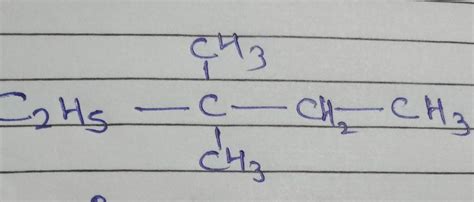 CH3
C2H5 — C — CH2 — CH3
CH3